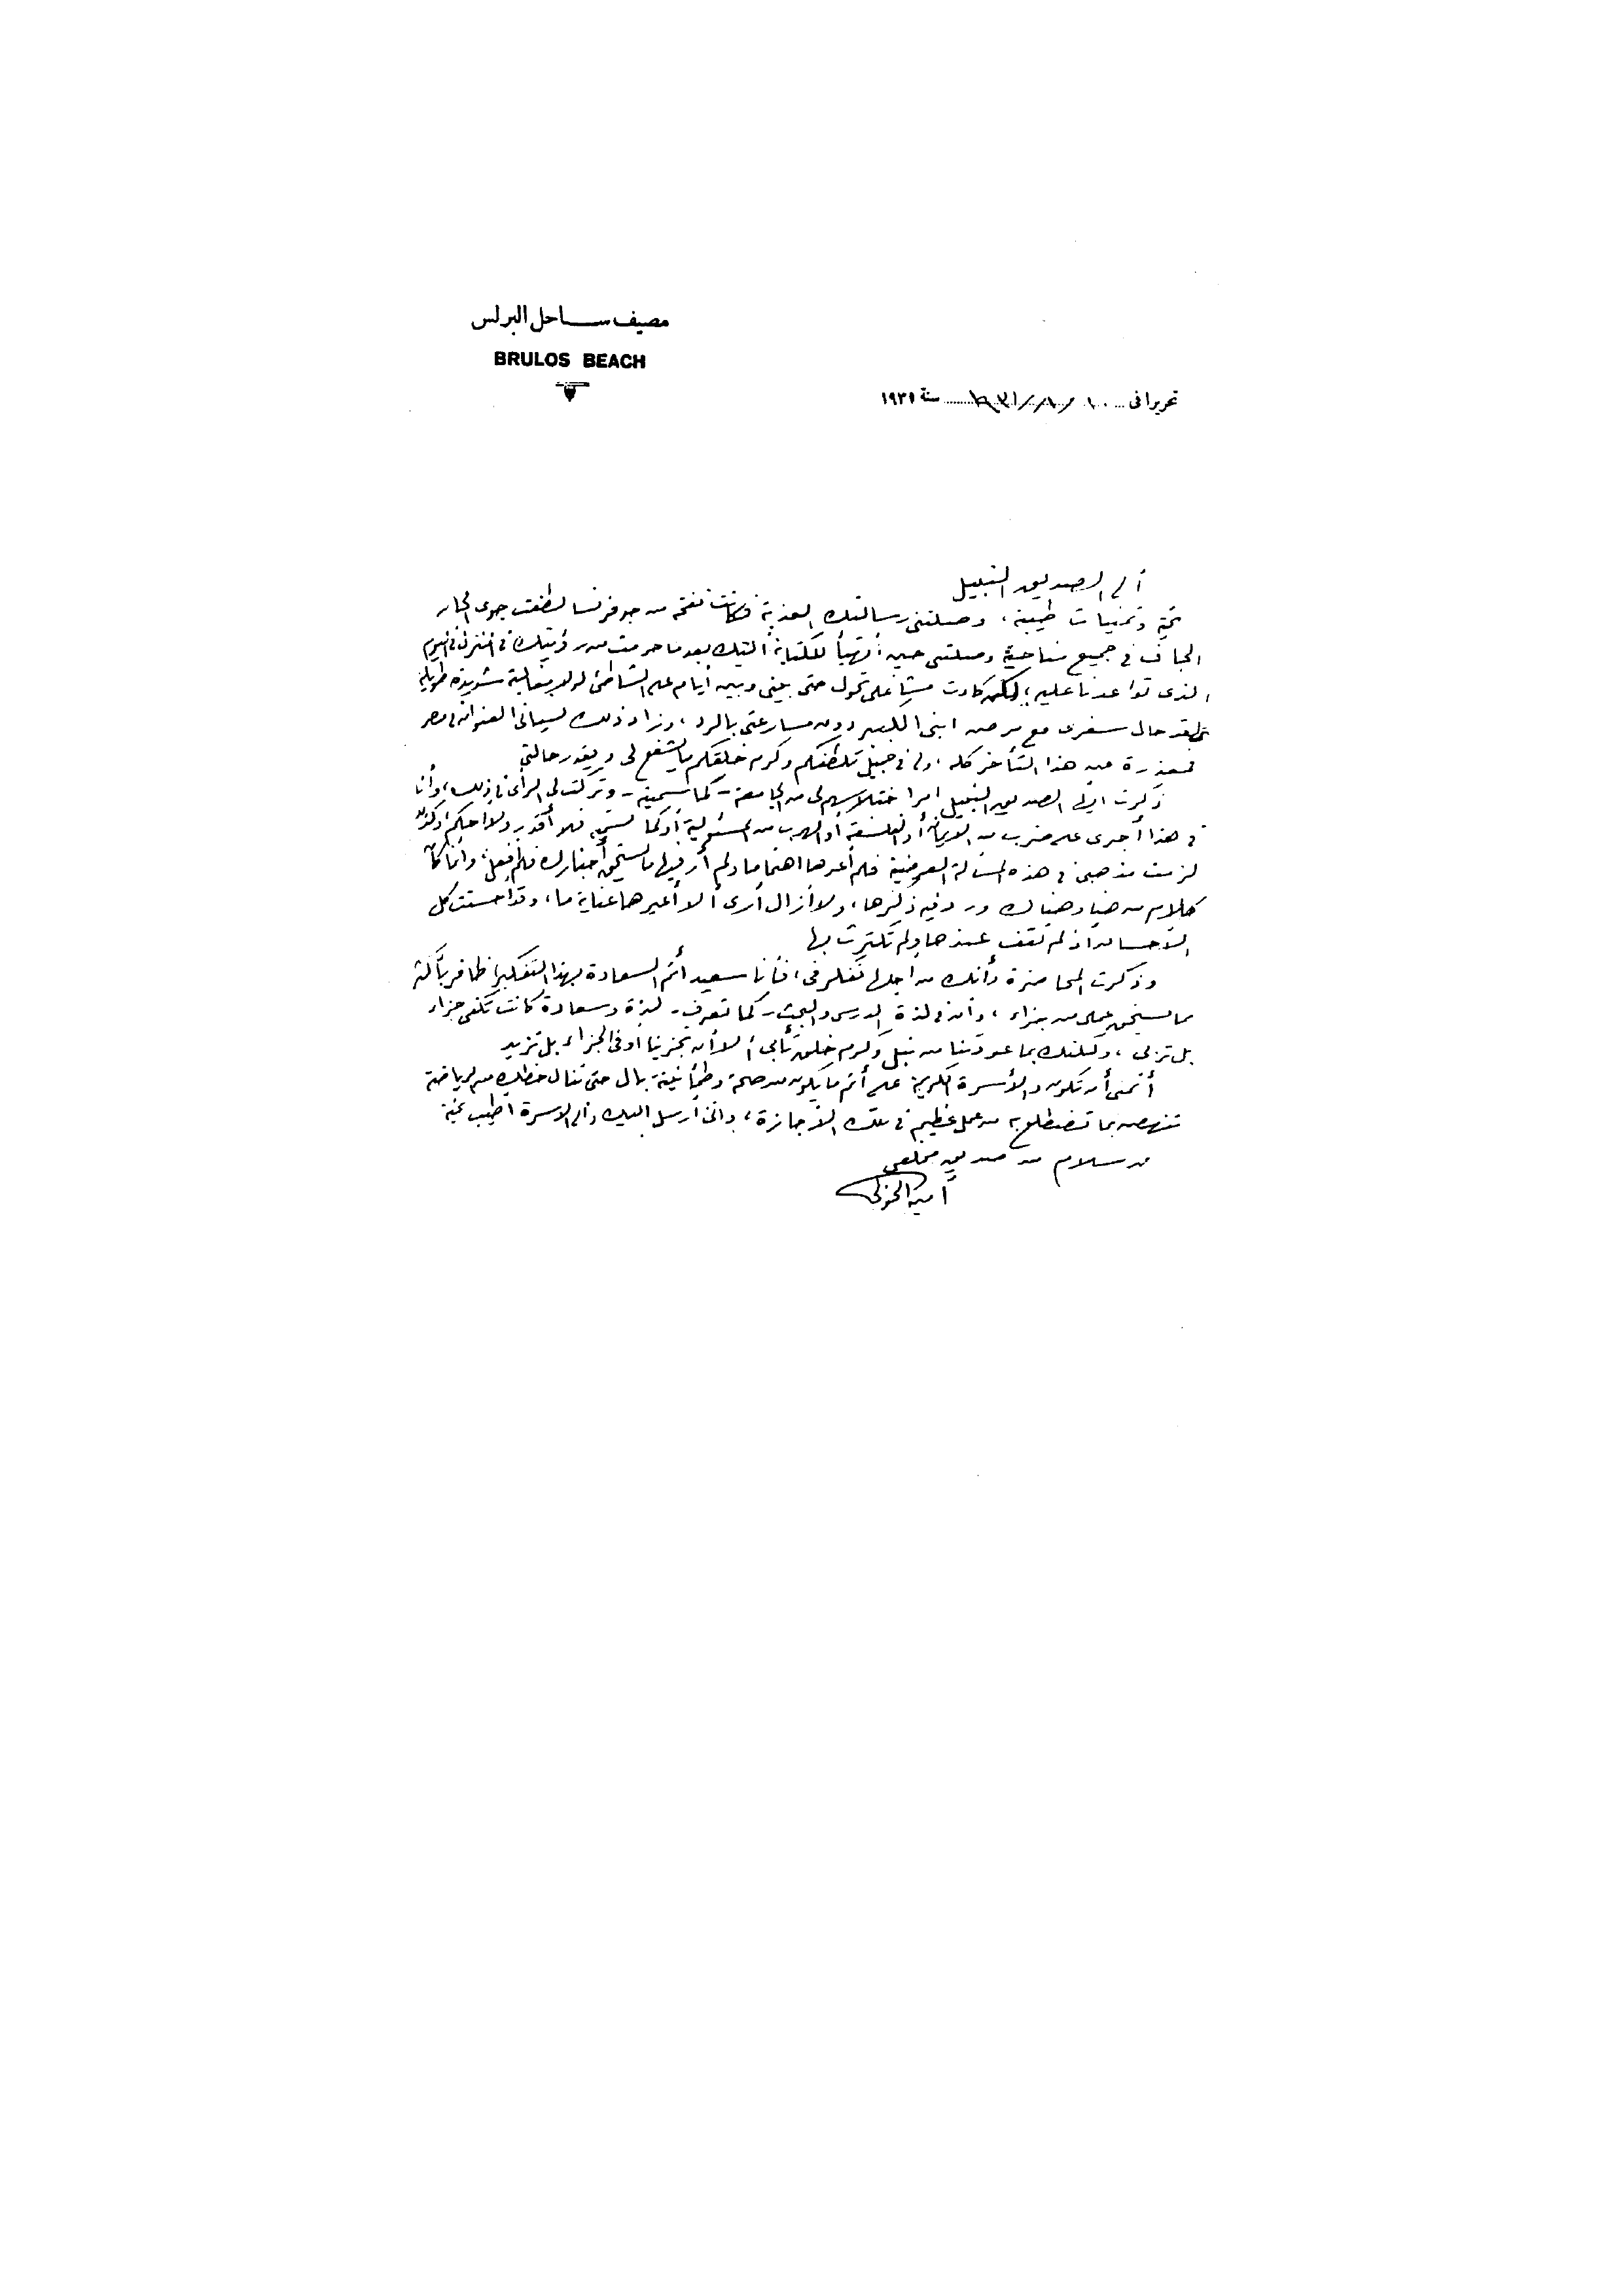 مصيف ساحل البرلس
BRULOS BEACH
تحريرا فى ١٠ / ٨ / ٩٣١ سنة ١٩٣١
إلى الصديق النبيل
تحية وتمنيات طيبة، وصلتنى رسالتك العذبة فكانت نفحة من جو فرنسا لطفت جوى الحار
الجاف فى جميع مناحيه وصلتنى حين أتهيأ للكتابة اليك بعد ما حرمت من رؤيتك فى المنزل فى اليوم
الذى تواعدنا عليه؛ لكن كادت تحول حتى بينى وبين أيام على الشاطئ لولا مغالبة شديدة طويلة
فقد حال سفرى مع مرض ابنى الكبير دون مسارعتى بالرد، وزاد ذلك نسيانى العنوان فى مصر
فمعذرة عن هذا التأخر كله، ولى فى جميل تلطفكم وكرم خلقكم ما يشفع لى ويقدر حالتى
ذكرت أيها الصديق النبيل امر اختلاسهم لى من الجامعة - كما تسميه - وتركت لى الرأى فى ذلك، وأنا
فى هذا أجرى على ضرب من الايمان أو الفلسفة أو الهرب من المسئولية أو كما تسميه فلا أقدر ولا احكم
لزمت مذهبى فى هذه المسألة العرضية فلم أعرها اهتماما ولم أر فيها ما يستحق
كلام من هنا وهناك ورد فيه ذكرها، ولا أزال أرى ألا أعيرها عناية ما، وقد احسنت كل
الاحسان اذ لم تقف عندها ولم تكترث بها
وذكرت المحاضرة وأنك من اجلها تفكر فى، فأنا سعيد أتم السعادة بهذا التفكير ظافر بأكثر
مما يستحق عملى من جزاء، وأن فى لذة الدرس والبحث - كما تعرف - لذة وسعادة كانت تكفى جزاء
بل تربى، ولكنك بما عودتنا من نبل وكرم خلق تأبى ألا أن تجزينا اوفى الجزاء بل تزيد
أتمنى أن تكون والأسرة الكريمة على أتم ما يكون من صحة وطمأنينة بال حتى تنال حظك من الرياضة
تنهض بما تضطلع به من عمل عظيم فى تلك الأجازة، وانى أرسل اليك والى الاسرة اطيب تحية
من سلام من صديق مخلص
أمين الخولى